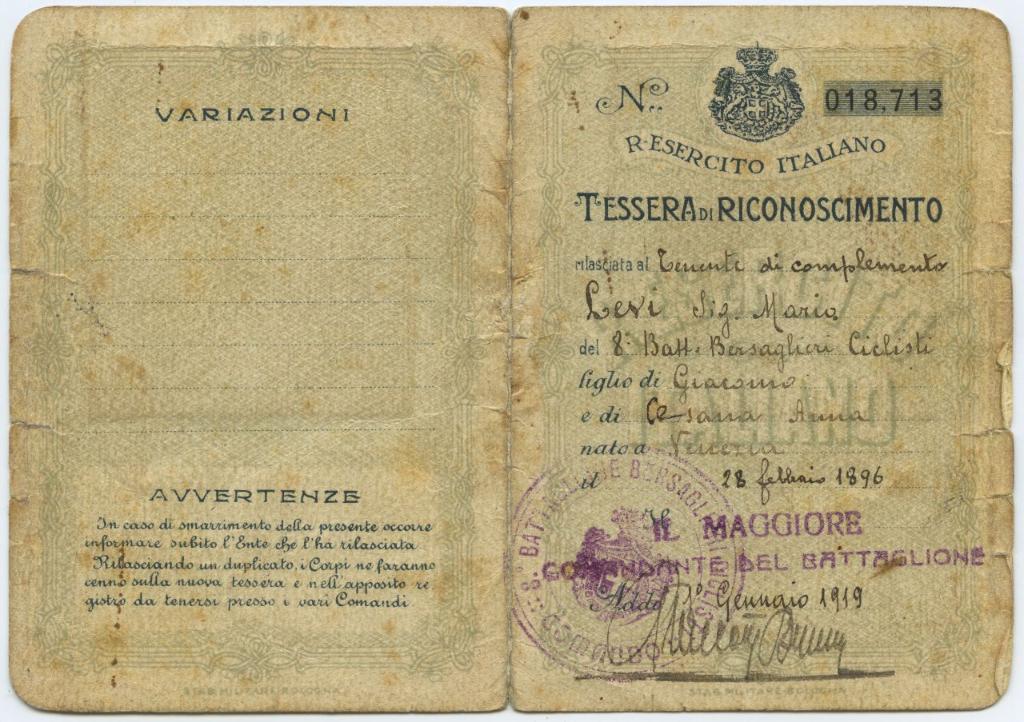 VARIAZIONI
AVVERTENZE
In caso di smarrimento della presente occorre
informare subito l'Ente che l'ha rilasciata
Rilasciando un duplicato, i Corpi ne faranno
cenno sulla nuova tessera e nell'apposito re
gistro da tenersi presso i vari Comandi
STAB. MILITARE BOLOGNA
N..
018,713
R. ESERCITO ITALIANO
TESSERA DI RICONOSCIMENTO
rilasciata al Tenente di complemento
Levi Sig. Mario
del 8° Batt. Bersaglieri Ciclisti
figlio di Giacomo
e di Cesana Anna
nato a Venezia
il 28 febbraio 1896
IL MAGGIORE
COMANDANTE DEL BATTAGLIONE
Addì 1° Gennaio 1919
8° BATTAGLIONE BERSAGLIERI CICLISTI
COMANDO
STAB. MILITARE BOLOGNA